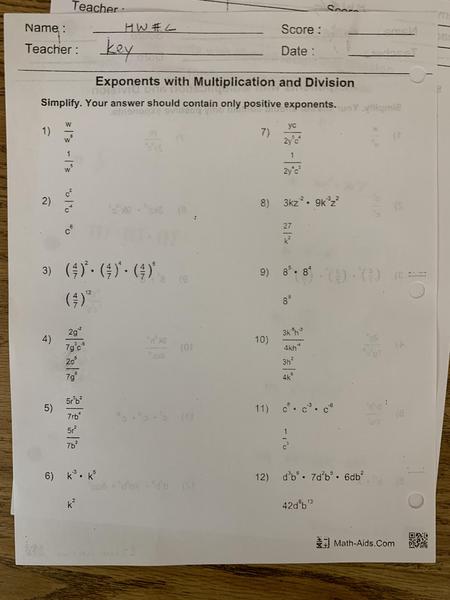 Teacher :
Score
Name : HW#6
Score :
Teacher : key
Date :
Exponents with Multiplication and Division
Simplify. Your answer should contain only positive exponents.
1) w
w⁶
1
w⁵
2) c²
c⁻⁴
c⁶
3) (4/7)² • (4/7)⁴ • (4/7)⁶
(4/7)¹²
4) 2g⁻²
7g³c⁻⁵
2c⁵
7g⁵
5) 5r³b²
7rb⁴
5r²
7b²
6) k⁻³ • k⁵
k²
7) yc
2y⁵c⁴
1
2y⁴c³
8) 3kz⁻² • 9k⁻³z²
27
k²
9) 8⁵ • 8⁴
8⁹
10) 3k⁻⁵h⁻²
4kh⁻⁴
3h²
4k⁶
11) • c⁻³ •
1
12) d³b⁶ • 7d²b⁵ • 6db²
42d⁶b¹³
Math-Aids.Com